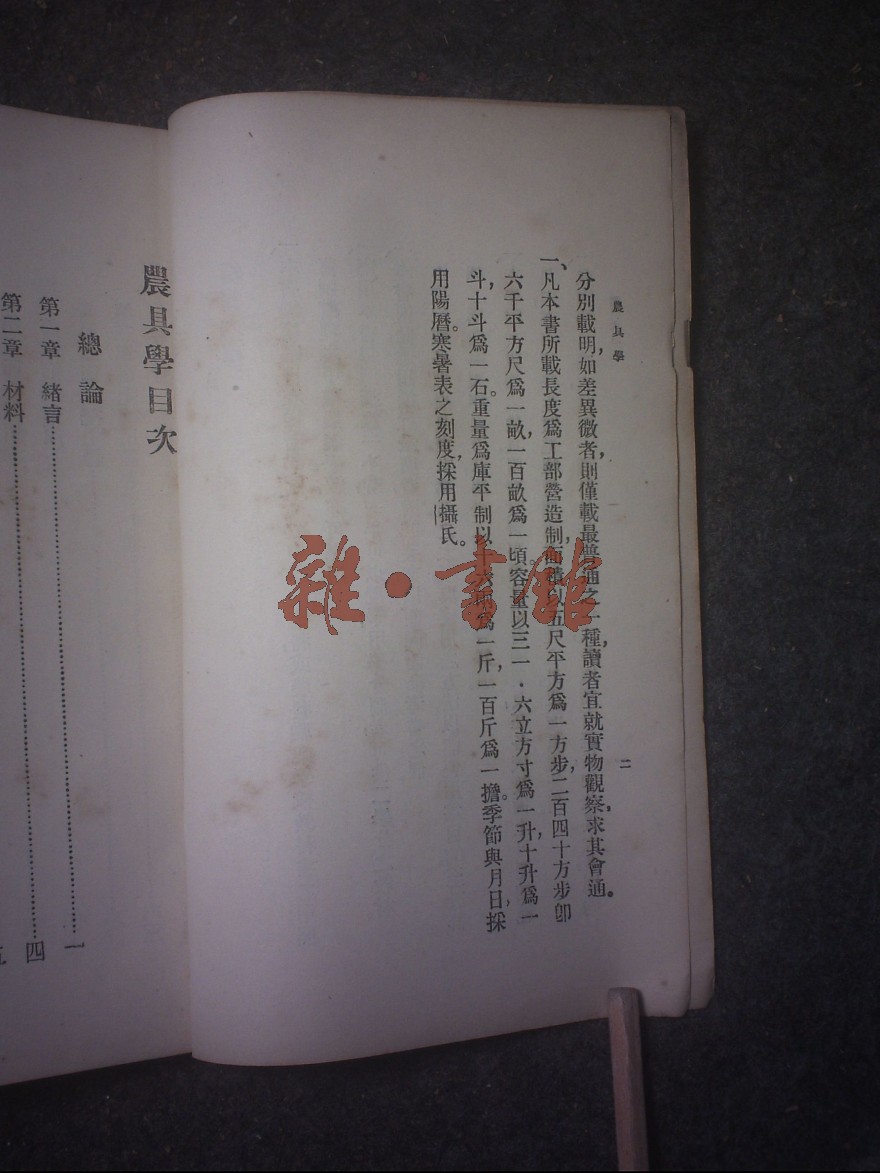 農具學
二
分別載明，如差異微者，則僅載最普通之一種，讀者宜就實物觀察，求其會通。
一、凡本書所載長度爲工部營造制，面積以五尺平方爲一方步，二百四十方步卽
六千平方尺爲一畝，一百畝爲一頃。容量以三一．六立方寸爲一升，十升爲一
斗，十斗爲一石。重量爲庫平制以十六兩爲一斤，一百斤爲一擔。季節與月日，採
用陽曆。寒暑表之刻度，採用攝氏。
農具學目次
總論
第一章 緒言……一
第二章 材料……四
雜·書館